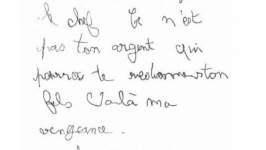 le chef Ce n'est
pas ton argent qui
pourra te redonner ton
fils Voilà ma
vengeance.